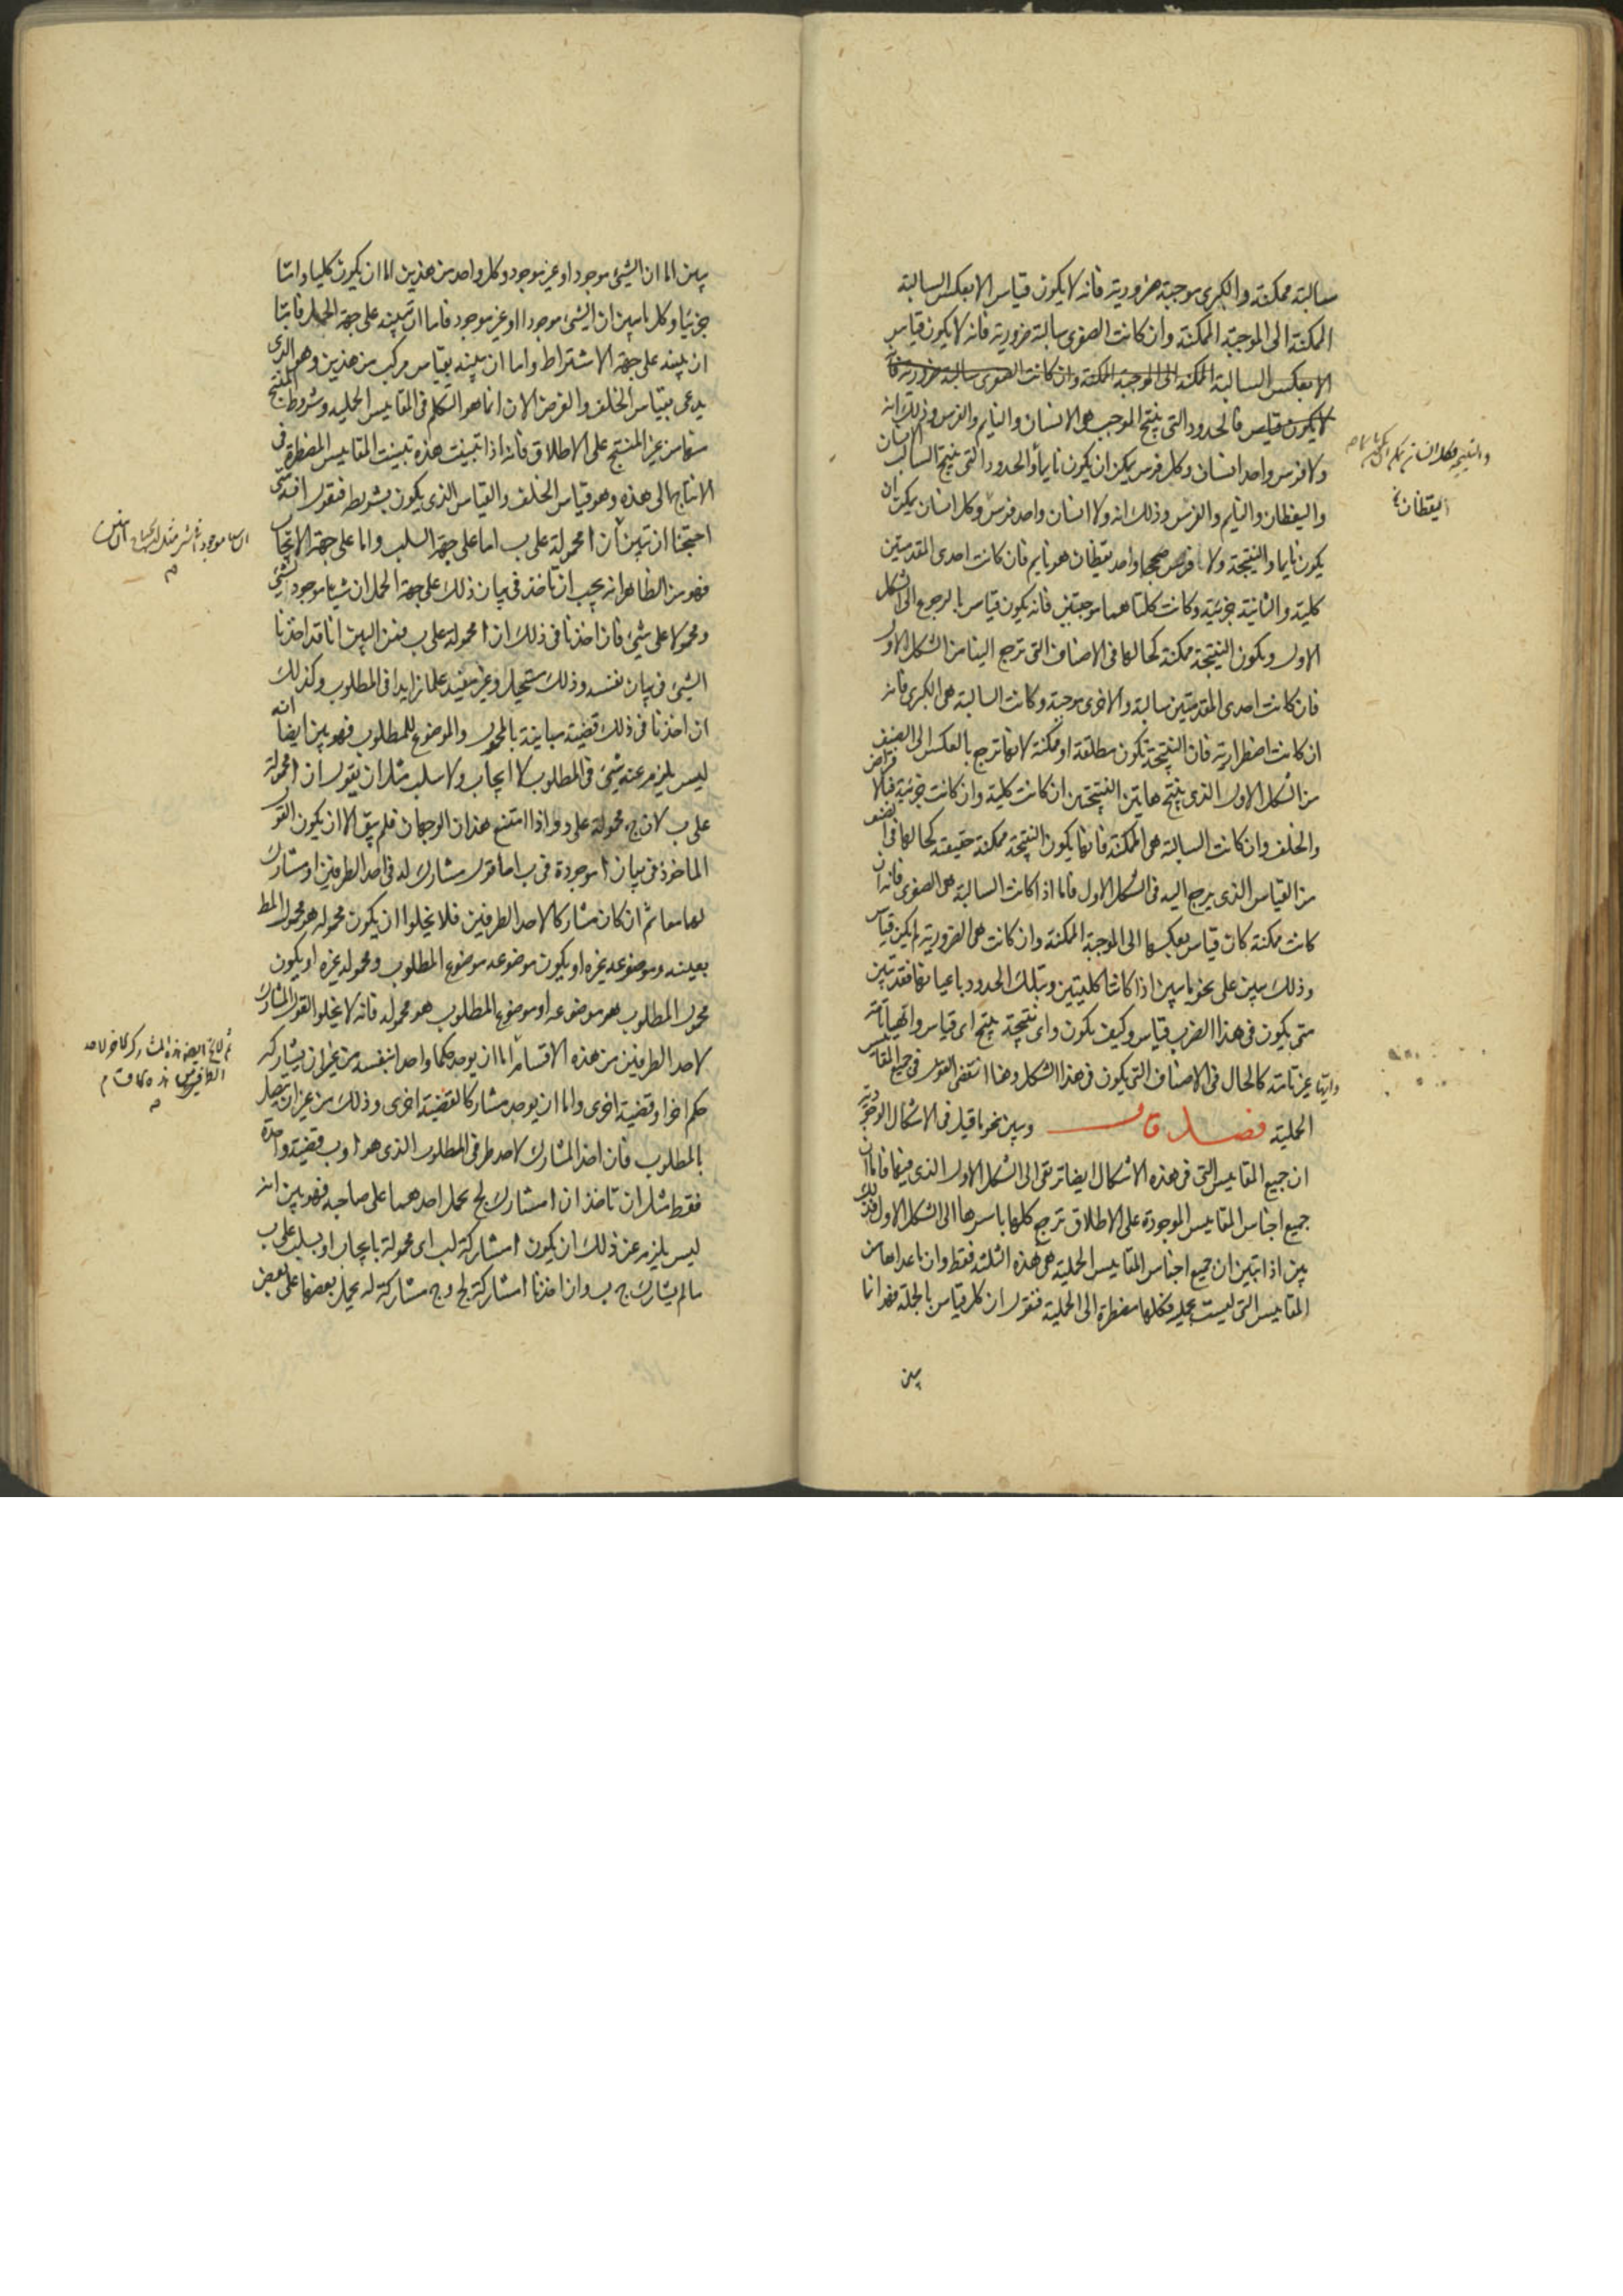 سالبة ممكنة والكبرى موجبة ضرورية فانه لا يكون قياس الا بعكس السالبة
الممكنة الى الموجبة الممكنة وان كانت الصغرى سالبة ضرورية فانه لا يكون قياس
الا بعكس السالبة الممكنة الى الموجبة الممكنة وان كانت الصغرى سالبة ضرورية فا
لا يكون قياس فالحدود التى ينتج الموجب هى الانسان والنايم والفرس وذلك انه
ولا فرس واحد انسان وكل فرس يمكن ان يكون نايما والحدود التى ينتج السالب الانسان
واليقظان والنايم والفرس وذلك انه ولا انسان واحد فرس وكل انسان يمكن ان
يكون نايما والنتيجة ولا واحد يقظان هو نايم فان كانت احدى المقدمتين
كلية والثانية جزئية وكانت كلتاهما موجبتين فانه يكون قياس بالرجوع الى الشكل
الاول ويكون النتيجة ممكنة كحالها فى الاصناف التى ترجع الينا من الشكل الاول
فان كانت احدى المقدمتين سالبة والاخرى موجبة وكانت السالبة هى الكبرى فانه
ان كانت اضطرارية فان النتيجة تكون مطلقة او ممكنة لانها ترجع بالعكس الى الصنف
من الشكل الاول الذى ينتج هاتين النتيجتين ان كانت كلية وان كانت جزئية فبالافتراض
والخلف وان كانت السالبة هى الممكنة فانها يكون النتيجة ممكنة حقيقة كحالها فى الصنف
من القياس الذى يرجع اليه فى الشكل الاول فاما اذا كانت السالبة هى الصغرى فانه ان
كانت ممكنة كان قياس بعكسها الى الموجبة الممكنة وان كانت هى الضرورية لم يكن قياس
وذلك يبين على نحو ما يبين اذا كانتا كليتين وبتلك الحدود باعيانها فقد تبين
متى يكون فى هذا الضرب قياس وكيف يكون واى نتيجة ينتج اى قياس وايها تامة
وايها غير تامة كالحال فى الاصناف التى يكون فى هذا الشكل وهنا انقضى القول فى جميع المقاييس
الحملية فصل قال ويبين نحو ما قيل فى الاشكال الوجودية
ان جميع المقاييس التى فى هذه الاشكال ايضا ترتقى الى الشكل الاول الذى فيها فاما ان
جميع اجناس المقاييس الموجودة على الاطلاق ترجع كلها باسرها الى الشكل الاول فذلك
يبين اذا تبين ان جميع اجناس المقاييس الحملية هى هذه الثلثة فقط وان ما عداها من
المقاييس التى ليست بحملية فكلها مضطرة الى الحملية فنقول ان كل قياس بالجملة فهو انما
يبين
اليقظان
يبين اما ان الشىء موجود او غير موجود وكل واحد من هذين اما ان يكون كليا واما
جزئيا وكل ما يبين ان الشىء موجودا او غير موجود فاما ان تبينه على جهة الحمل واما
ان يبينه على جهة الاشتراط واما ان يبينه بقياس مركب من هذين وهو الذى
يدعى بقياس الخلف والغرض الان انما هو التكلم فى المقاييس الحملية وشروط المنتج
منها من غير المنتج على الاطلاق فانه اذا تبينت هذه تبينت المقاييس المضطرة فى
الانتاج الى هذه وهو قياس الخلف والقياس الذى يكون بشريطة فنقول انه متى
احتجنا ان تبين ان ا محمولة على ب اما على جهة السلب واما على جهة الايجاب
فهو من الظاهر انه يجب ان ناخذ فى بيان ذلك على جهة الحمل ان شيئا موجود لشىء
ومحمولا على شىء فان اخذنا فى ذلك ان ا محمولة على ب فمن البين انا قد اخذنا
الشىء فى بيان نفسه وذلك مستحيل وغير مفيد علما زايدا فى المطلوب وكذلك
ان اخذنا فى ذلك قضية مباينة بالمحمول والموضوع للمطلوب فهو بين ايضا انه
ليس يلزم عنه شىء فى المطلوب لا ايجاب ولا سلب مثل ان نقول ان ا محمولة
على ب لان ج محمولة على د واذا امتنع هذان الوجهان فلم يبق الا ان يكون القول
الماخوذ فى بيان ا موجودة فى ب اما قول مشارك له فى احد الطرفين او مشارك
لهما معا ثم ان كان مشاركا لاحد الطرفين فلا يخلوا ان يكون محموله هو محمول المط
بعينه وموضوعه غيره او يكون موضوعه موضوع المطلوب ومحموله غيره او يكون
محمول المطلوب هو موضوعه او موضوع المطلوب هو محموله فانه لا يخلوا القول المشارك
لاحد الطرفين من هذه الاقسام اما ان يوجد حكما واحدا بنفسه من غير ان يشاركه
حكم اخر او قضية اخرى واما ان يوجد مشاركا لقضية اخرى وذلك من غير ان يتصل
بالمطلوب فان اخذ المشارك لاحد طرفى المطلوب الذى هو ا و ب قضية واحدة
فقط مثل ان تاخذ ان ا مشارك لج بحمل احدهما على صاحبه فهو بين انه
ليس يلزم عن ذلك ان يكون ا مشاركة لب اى محمولة بايجاب او بسلب على ب
ما لم يشارك ج ب وان اخذنا ا مشاركة لج و ج مشاركة له بحمل بعضها على بعض